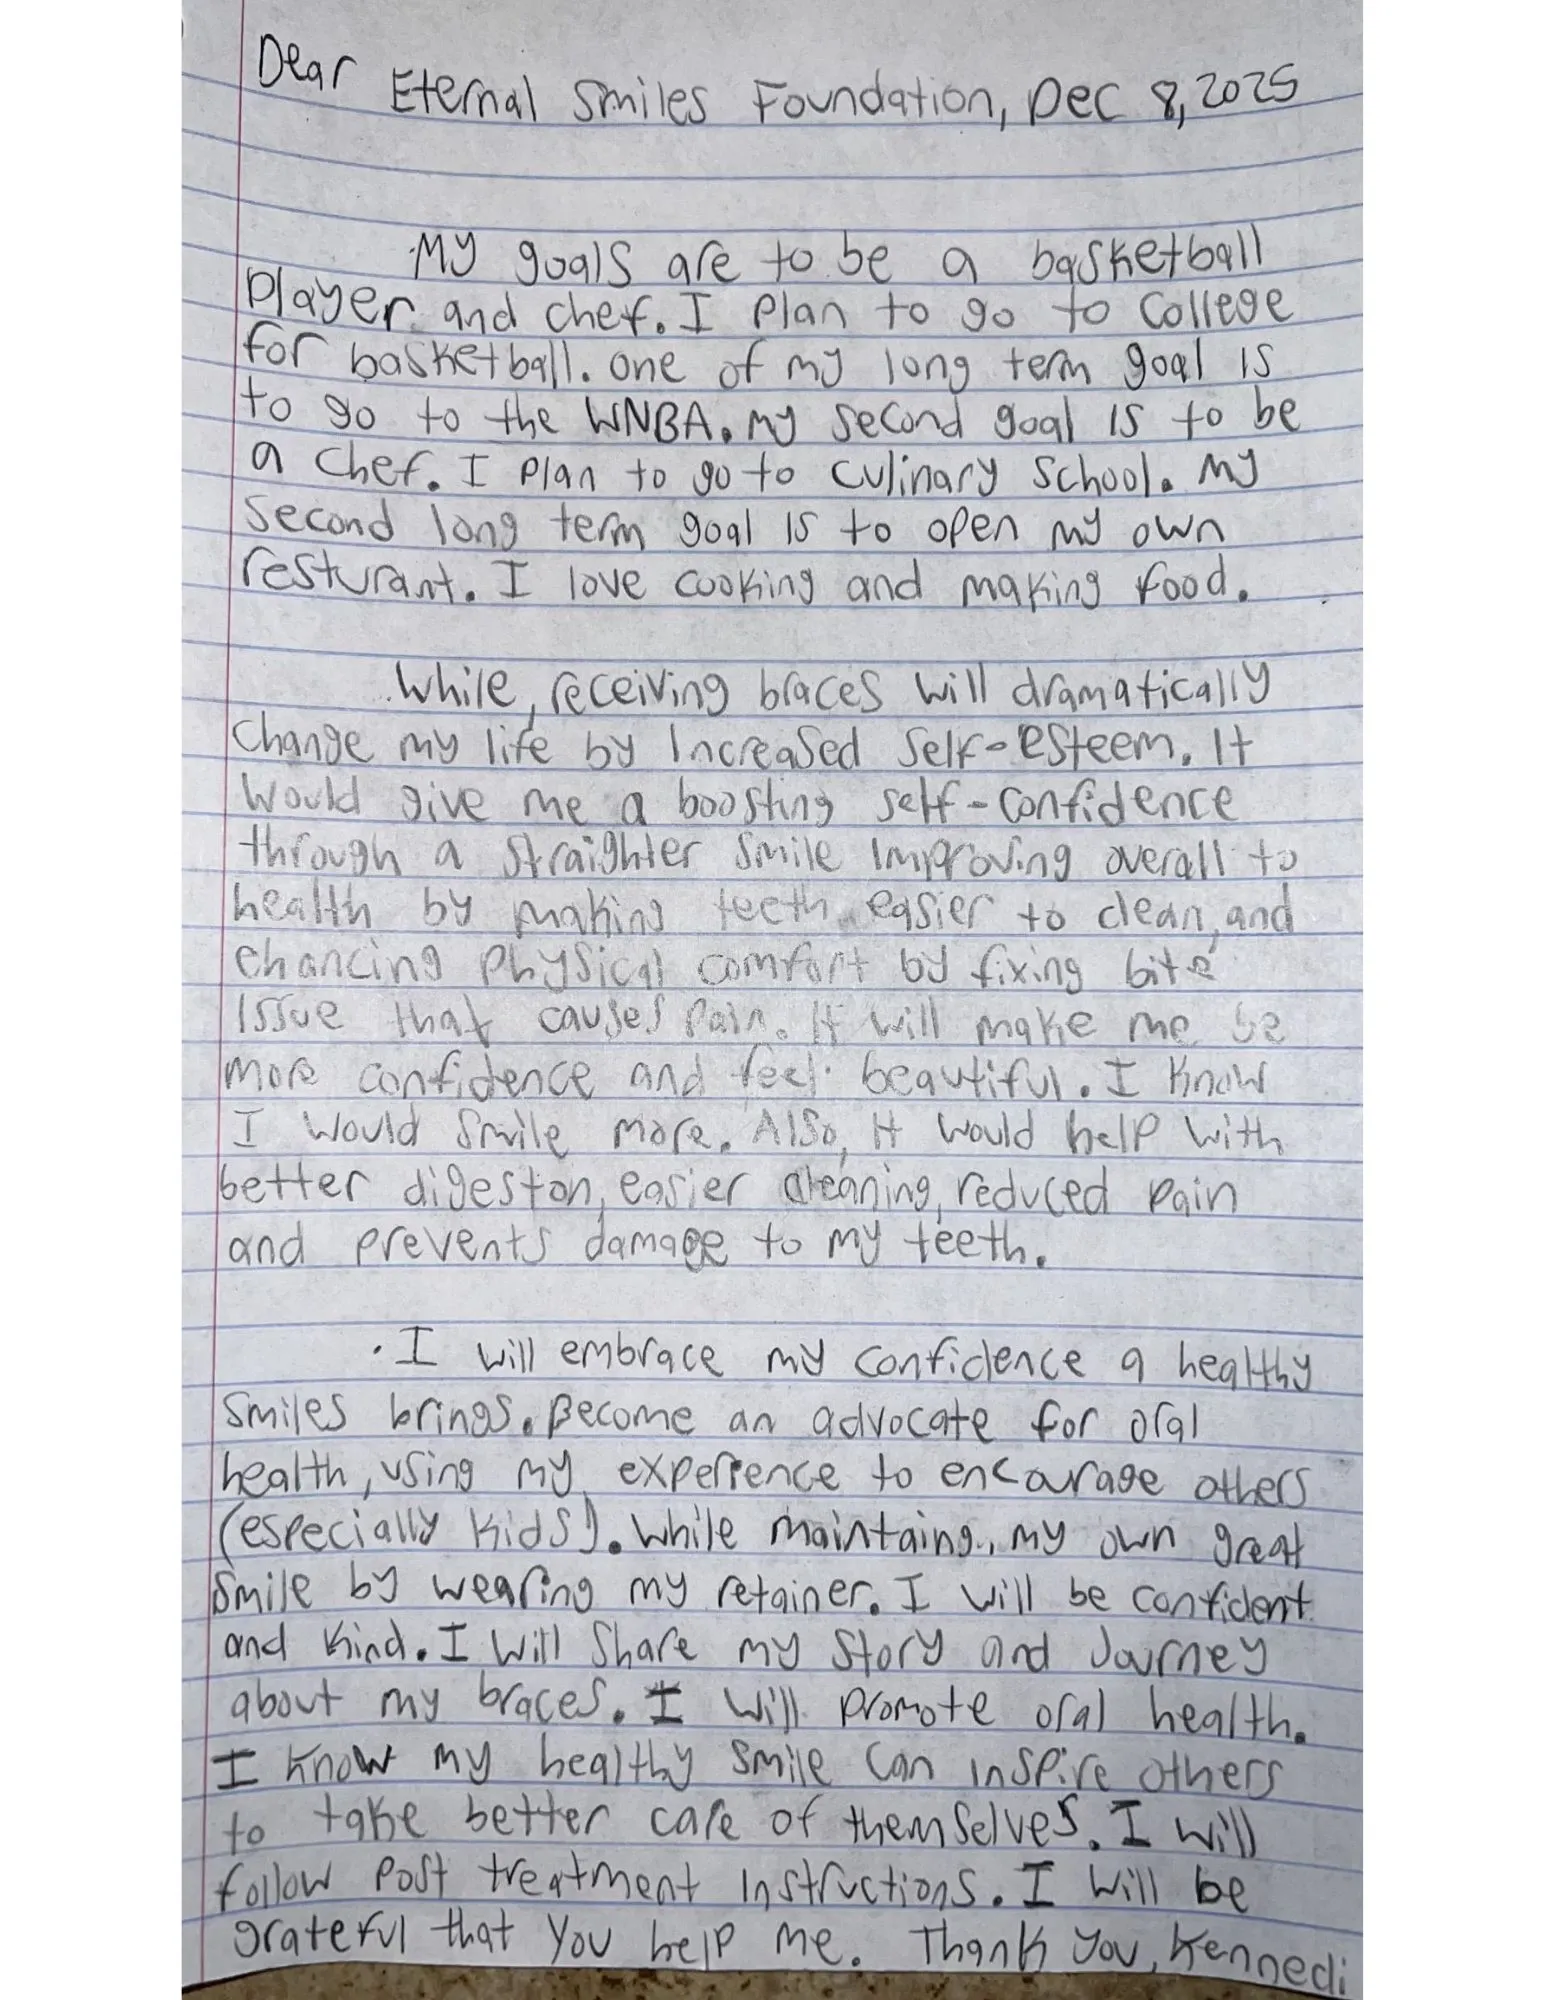 Dear Eternal Smiles Foundation, Dec 8, 2025
My goals are to be a basketball
Player and chef. I Plan to go to College
for basketball. one of my long term goal is
to go to the WNBA. my second goal is to be
a chef. I Plan to go to culinary School. My
Second long term goal is to open my own
resturant. I love cooking and making food.
While, receiving braces will dramatically
Change my life by Increased Self-esteem. It
Would give me a boosting self-confidence
through a straighter smile Improving overall to
health by making teeth easier to clean, and
enhancing Physical comfort by fixing bite
Issue that causes Pain. It will make me be
more confidence and feel beautiful. I Know
I would Smile more. Also, It would help with
better digeston, easier cleaning, reduced pain
and prevents damage to my teeth.
I will embrace my confidence a healthy
Smiles brings. Become an advocate for oral
health, using my experience to encourage others
(especially Kids). While maintaing, my own great
Smile by wearing my retainer. I will be confident
and Kind. I will Share my Story and Journey
about my braces. I will promote oral health.
I Know my healthy Smile can inspire others
to take better care of themselves. I will
follow Post treatment Instructions. I will be
grateful that You help me. Thank You, Kennedi